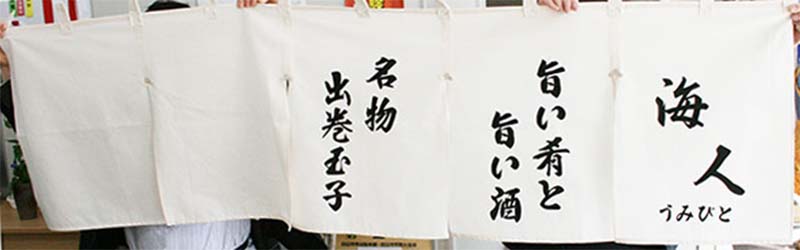 海人
うみびと
旨い肴と
旨い酒
名物
出巻玉子